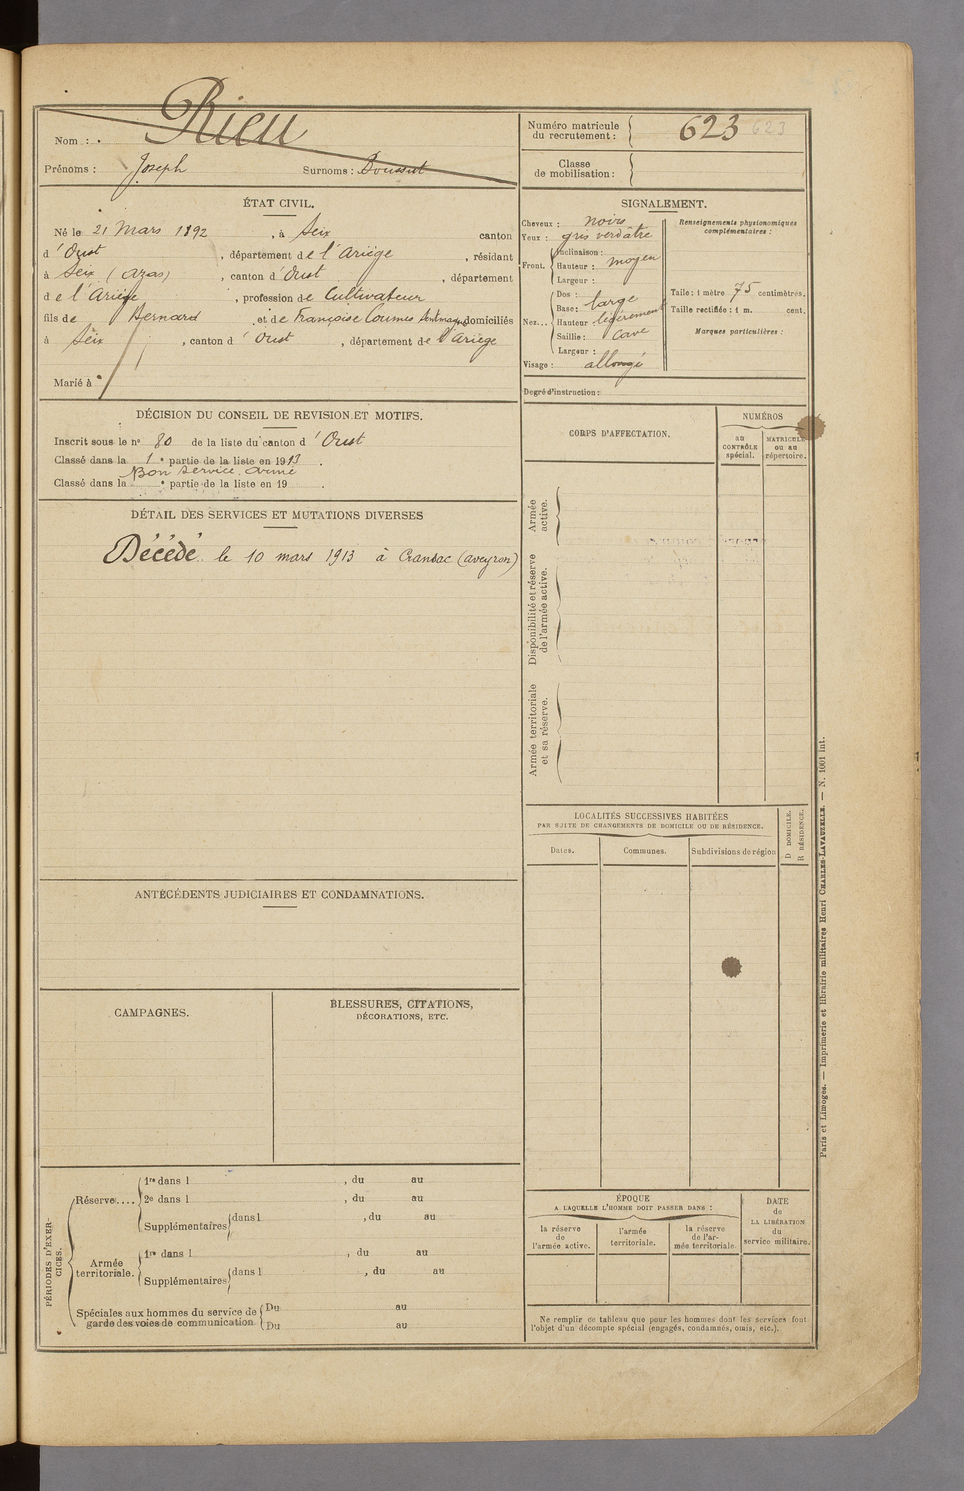 Nom : Rieu
Prénoms : Joseph Surnoms : Doussut
Numéro matricule du recrutement : 623 623
Classe de mobilisation :
ÉTAT CIVIL.
Né le 21 Mars 1892, à Seix canton
d'Oust, département de l'Ariège, résidant
à Seix (Azas), canton d'Oust, département
de l'Ariège, profession de Cultivateur
fils de Bernard et de Françoise Coumes domiciliés
à Seix, canton d'Oust, département de l'Ariège
Marié à
SIGNALEMENT.
Cheveux : noirs
Yeux : gris verdâtre
Front. Inclinaison :
Hauteur : moyen
Largeur :
Nez... Dos :
Base : large
Hauteur légèrement
Saillie : cave
Largeur :
Visage : allongé
Renseignements physionomiques complémentaires :
Taille : 1 mètre 75 centimètres.
Taille rectifiée : 1 m. cent.
Marques particulières :
Degré d'instruction :
DÉCISION DU CONSEIL DE REVISION ET MOTIFS.
Inscrit sous le n° 80 de la liste du canton d'Oust
Classé dans la 1e partie de la liste en 1913.
Bon service armé
Classé dans la e partie de la liste en 19 .
DÉTAIL DES SERVICES ET MUTATIONS DIVERSES
Décédé le 10 mars 1913 à Cransac (Aveyron)
CORPS D'AFFECTATION.
NUMÉROS
au CONTRÔLE spécial.
MATRICULE ou au répertoire.
Armée active.
Disponibilité et réserve de l'armée active.
Armée territoriale et sa réserve.
LOCALITÉS SUCCESSIVES HABITÉES
PAR SUITE DE CHANGEMENTS DE DOMICILE OU DE RÉSIDENCE.
Dates.
Communes.
Subdivisions de région
D DOMICILE.
R RÉSIDENCE.
ANTÉCÉDENTS JUDICIAIRES ET CONDAMNATIONS.
CAMPAGNES.
BLESSURES, CITATIONS,
DÉCORATIONS, ETC.
PÉRIODES D'EXERCICES.
Réserve....
1re dans l , du au
2e dans l , du au
Supplémentaires dans l , du au
Armée territoriale.
1re dans l , du au
Supplémentaires dans l , du au
Spéciales aux hommes du service de garde des voies de communication
Du au
Du au
ÉPOQUE
A LAQUELLE L'HOMME DOIT PASSER DANS :
la réserve de l'armée active.
l'armée territoriale.
la réserve de l'armée territoriale.
DATE de LA LIBÉRATION du service militaire.
Ne remplir ce tableau que pour les hommes dont les services font
l'objet d'un décompte spécial (engagés, condamnés, omis, etc.).
Paris et Limoges. — Imprimerie et librairie militaires Henri CHARLES-LAVAUZELLE. — N. 1001 int.